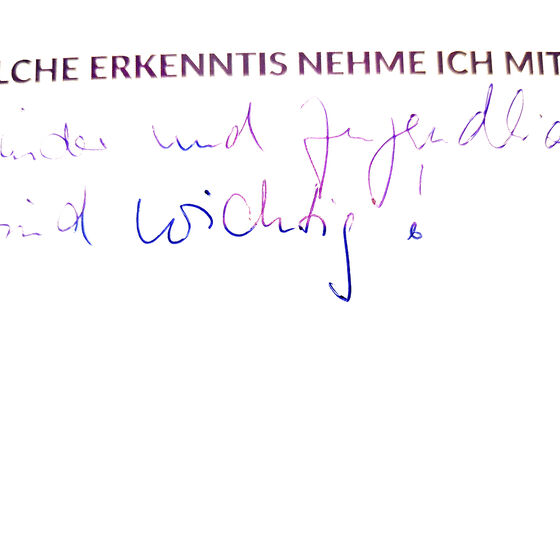 LCHE ERKENNTIS NEHME ICH MIT
inder und Jugendlic
sind wichtig!